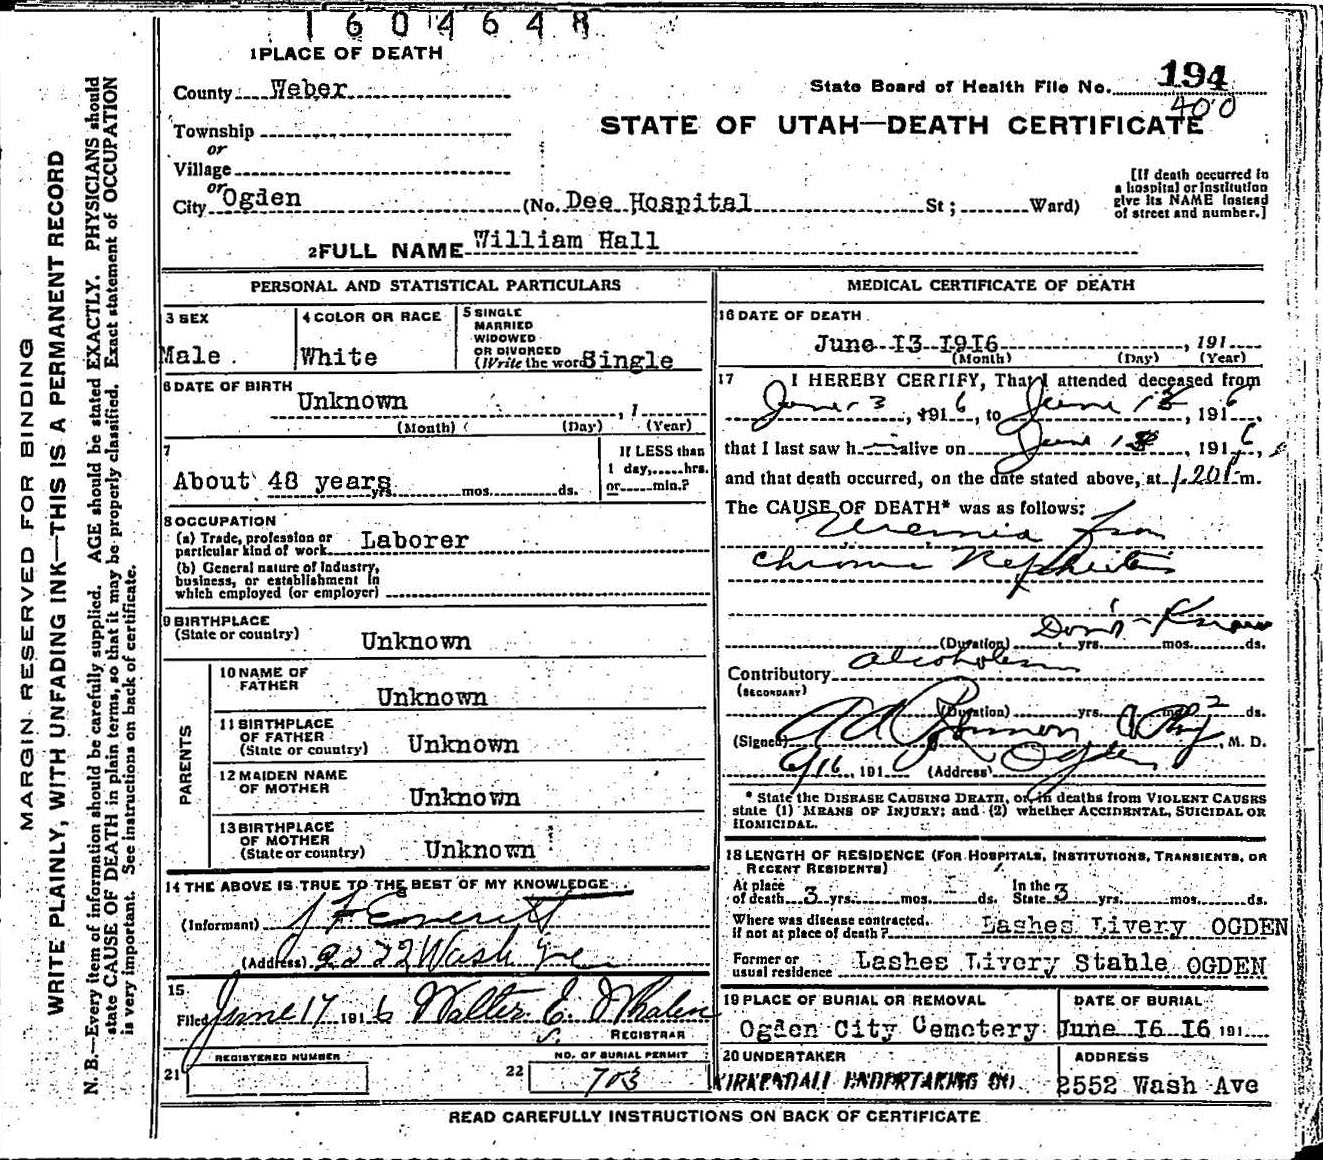 1604648
1 PLACE OF DEATH
County Weber
State Board of Health File No. 194
400
Township
or
Village
or
City Ogden
STATE OF UTAH—DEATH CERTIFICATE
(No. Dee Hospital St; Ward)
[If death occurred in
a hospital or institution
give its NAME instead
of street and number.]
2 FULL NAME William Hall
PERSONAL AND STATISTICAL PARTICULARS
3 SEX
Male
4 COLOR OR RACE
White
5 SINGLE
MARRIED
WIDOWED
OR DIVORCED
(Write the word) Single
6 DATE OF BIRTH
Unknown , 1
(Month) (Day) (Year)
7
About 48 years
yrs. mos. ds.
If LESS than
1 day, hrs.
or min.?
8 OCCUPATION
(a) Trade, profession or
particular kind of work Laborer
(b) General nature of Industry,
business, or establishment in
which employed (or employer)
9 BIRTHPLACE
(State or country) Unknown
PARENTS
10 NAME OF
FATHER Unknown
11 BIRTHPLACE
OF FATHER
(State or country) Unknown
12 MAIDEN NAME
OF MOTHER Unknown
13 BIRTHPLACE
OF MOTHER
(State or country) Unknown
14 THE ABOVE IS TRUE TO THE BEST OF MY KNOWLEDGE
(Informant) J F Everett
(Address) 2272 Wash Ave
15
Filed June 17 1916 Walter E. Whalen
REGISTRAR
REGISTERED NUMBER
21
NO. OF BURIAL PERMIT
22 703
MEDICAL CERTIFICATE OF DEATH
16 DATE OF DEATH
June 13 1916 , 191
(Month) (Day) (Year)
17 I HEREBY CERTIFY, That I attended deceased from
June 13, 1916, to June 13, 1916,
that I last saw h im alive on June 13, 1916,
and that death occurred, on the date stated above, at 1.20 P m.
The CAUSE OF DEATH* was as follows:
Uremia from
Chronic Nephritis
Don't Know
(Duration) yrs. mos. ds.
Contributory Alcoholism
(SECONDARY)
(Duration) yrs. mos. ds.
(Signed) , M. D.
6/16, 191 (Address) Ogden
* State the DISEASE CAUSING DEATH, or, in deaths from VIOLENT CAUSES
state (1) MEANS OF INJURY; and (2) whether ACCIDENTAL, SUICIDAL OR
HOMICIDAL.
18 LENGTH OF RESIDENCE (FOR HOSPITALS, INSTITUTIONS, TRANSIENTS, OR
RECENT RESIDENTS)
At place
of death 3 yrs. mos. ds.
In the
State 3 yrs. mos. ds.
Where was disease contracted.
if not at place of death? Lashes Livery OGDEN
Former or
usual residence Lashes Livery Stable OGDEN
19 PLACE OF BURIAL OR REMOVAL
Ogden City Cemetery
DATE OF BURIAL
June 16 16 191
20 UNDERTAKER
KIRKENDALL UNDERTAKING CO.
ADDRESS
2552 Wash Ave
READ CAREFULLY INSTRUCTIONS ON BACK OF CERTIFICATE
MARGIN RESERVED FOR BINDING
WRITE PLAINLY, WITH UNFADING INK—THIS IS A PERMANENT RECORD
N. B.—Every item of information should be carefully supplied. AGE should be stated EXACTLY. PHYSICIANS should
state CAUSE OF DEATH in plain terms, so that it may be properly classified. Exact statement of OCCUPATION
is very important. See instructions on back of certificate.